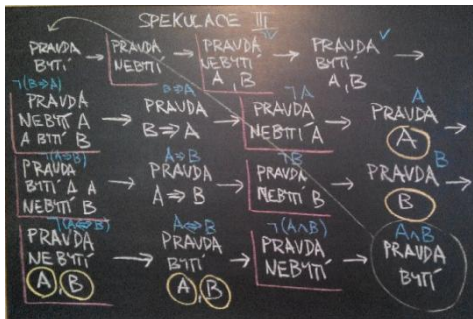 SPEKULACE III
PRAVDA BYTÍ → PRAVDA NEBYTÍ → PRAVDA NEBYTÍ A, B → PRAVDA BYTÍ A, B →
¬(B⇒A) PRAVDA NEBYTÍ A A BYTÍ B → B⇒A PRAVDA B⇒A → ¬A PRAVDA NEBYTÍ A → A PRAVDA A
¬(A⇒B) PRAVDA BYTÍ A A NEBYTÍ B → A⇒B PRAVDA A⇒B → ¬B PRAVDA NEBYTÍ B → B PRAVDA B
¬(A⇔B) PRAVDA NEBYTÍ A, B → A⇔B PRAVDA BYTÍ A, B → ¬(A∧B) PRAVDA NEBYTÍ → A∧B PRAVDA BYTÍ